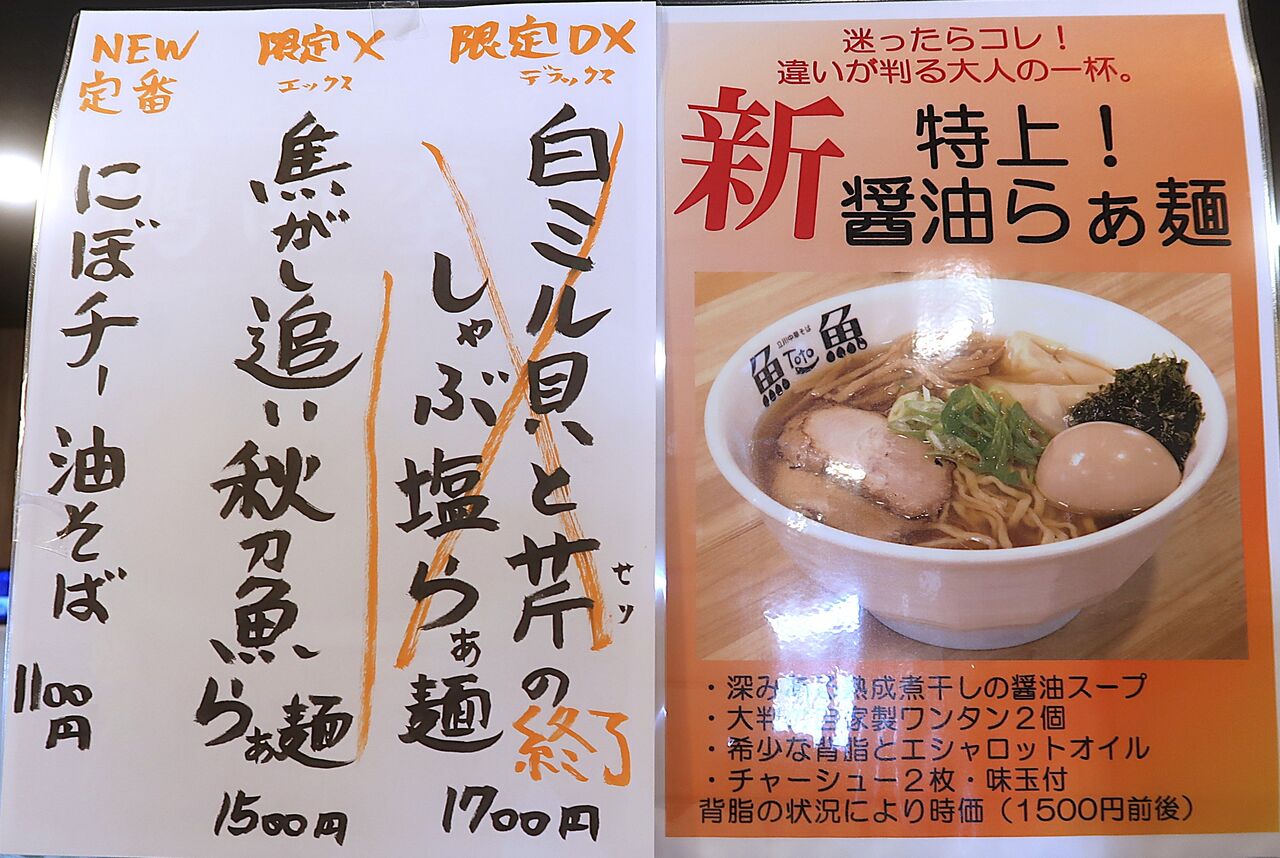 限定DX
デラックス
白ミル貝と芹の
セリ
しゃぶ塩らぁ麺
終了
1700円
限定X
エックス
焦がし追い秋刀魚
らぁ麺
1500円
NEW
定番
にぼチー油そば
1100円
迷ったらコレ！
違いが判る大人の一杯。
新
特上！
醤油らぁ麺
立川中華そば
魚 Toto 魚
・深み 熟成煮干しの醤油スープ
・大判 自家製ワンタン２個
・希少な背脂とエシャロットオイル
・チャーシュー２枚・味玉付
背脂の状況により時価（1500円前後）